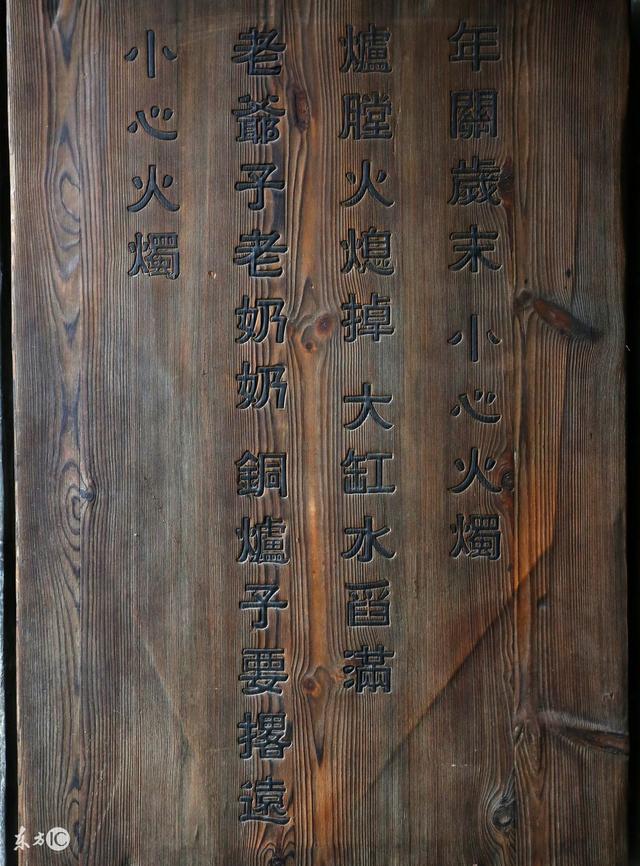 年關歲末 小心火燭
爐膛火熄掉 大缸水舀滿
老爺子老奶奶 銅爐子要撂遠
小心火燭
东方IC